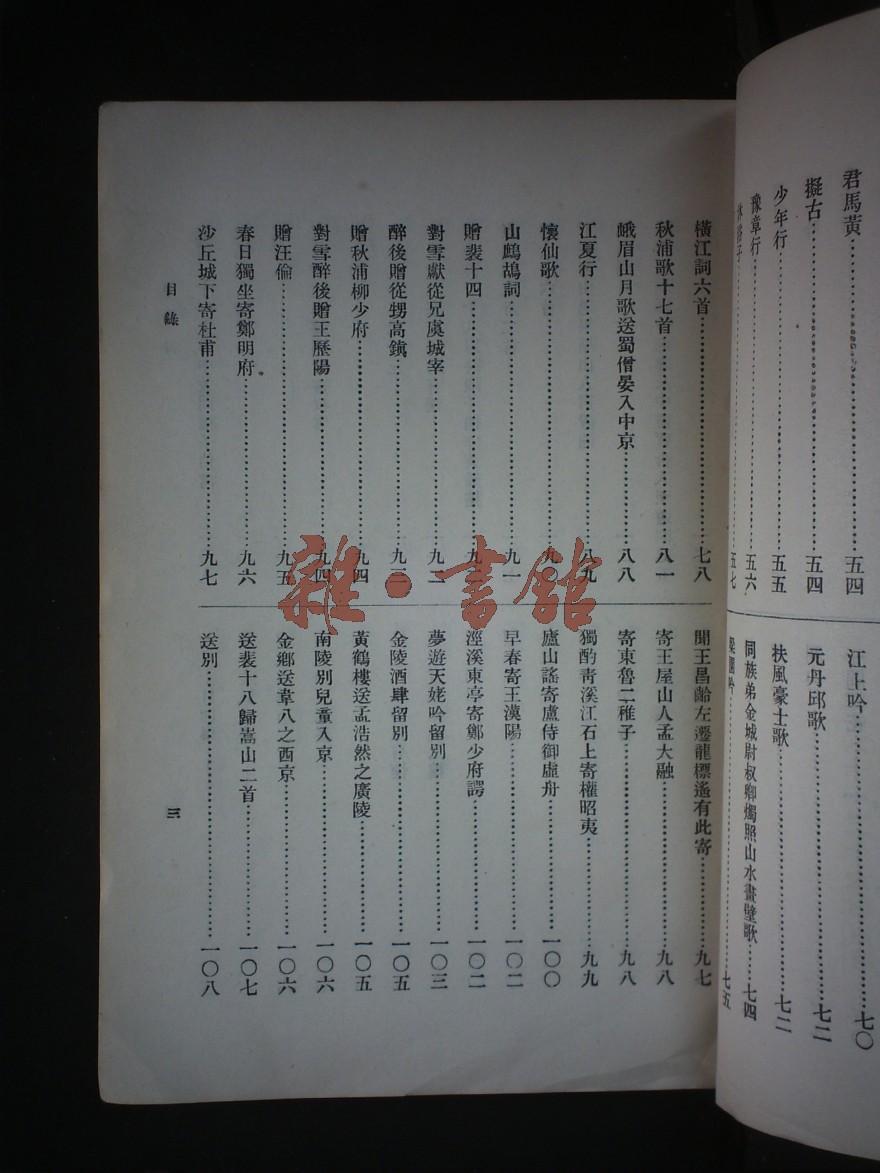 君馬黃…………五四
擬古…………五四
少年行…………五五
豫章行…………五六
沐浴子…………五七
江上吟…………七〇
元丹邱歌…………七二
扶風豪士歌…………七二
同族弟金城尉叔卿燭照山水畫壁歌…………七四
梁園吟…………七五
橫江詞六首…………七八
秋浦歌十七首…………八一
峨眉山月歌送蜀僧晏入中京…………八八
江夏行…………八九
懷仙歌…………九〇
山鷓鴣詞…………九一
贈裴十四…………九一
對雪獻從兄虞城宰…………九二
醉後贈從甥高鎮…………九三
贈秋浦柳少府…………九四
對雪醉後贈王歷陽…………九四
贈汪倫…………九五
春日獨坐寄鄭明府…………九六
沙丘城下寄杜甫…………九七
聞王昌齡左遷龍標遙有此寄…………九七
寄王屋山人孟大融…………九八
寄東魯二稚子…………九八
獨酌青溪江石上寄權昭夷…………九九
廬山謠寄盧侍御虛舟…………一〇〇
早春寄王漢陽…………一〇二
涇溪東亭寄鄭少府諤…………一〇二
夢遊天姥吟留別…………一〇三
金陵酒肆留別…………一〇五
黃鶴樓送孟浩然之廣陵…………一〇五
南陵別兒童入京…………一〇六
金鄉送韋八之西京…………一〇六
送裴十八歸嵩山二首…………一〇七
送別…………一〇八
目錄
三
雜·書館